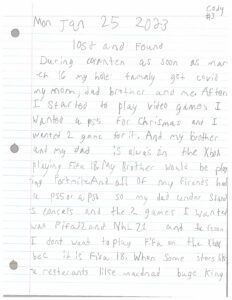 Cody
#3
Mon Jan 25 2023
lost and Found
During as soon as mar
ch 16 my hole family got covid
my mom, dad brother and me. After
I started to play video games I
wanted a ps5 for Chrismas and I
wanted 2 game for it. And my brother
and my dad is always on the Xbox
playing Fifa 18. My Brother would be play
ing Fortnite. And all of my firends had
a ps5 or a ps4 so my dad under stand
s and the 2 games I wanted
was Fifa22 and NHL 21 and
I dont want to play Fifa on the Xbox
bec it is Fifa 18. When some stors like
resterants like King